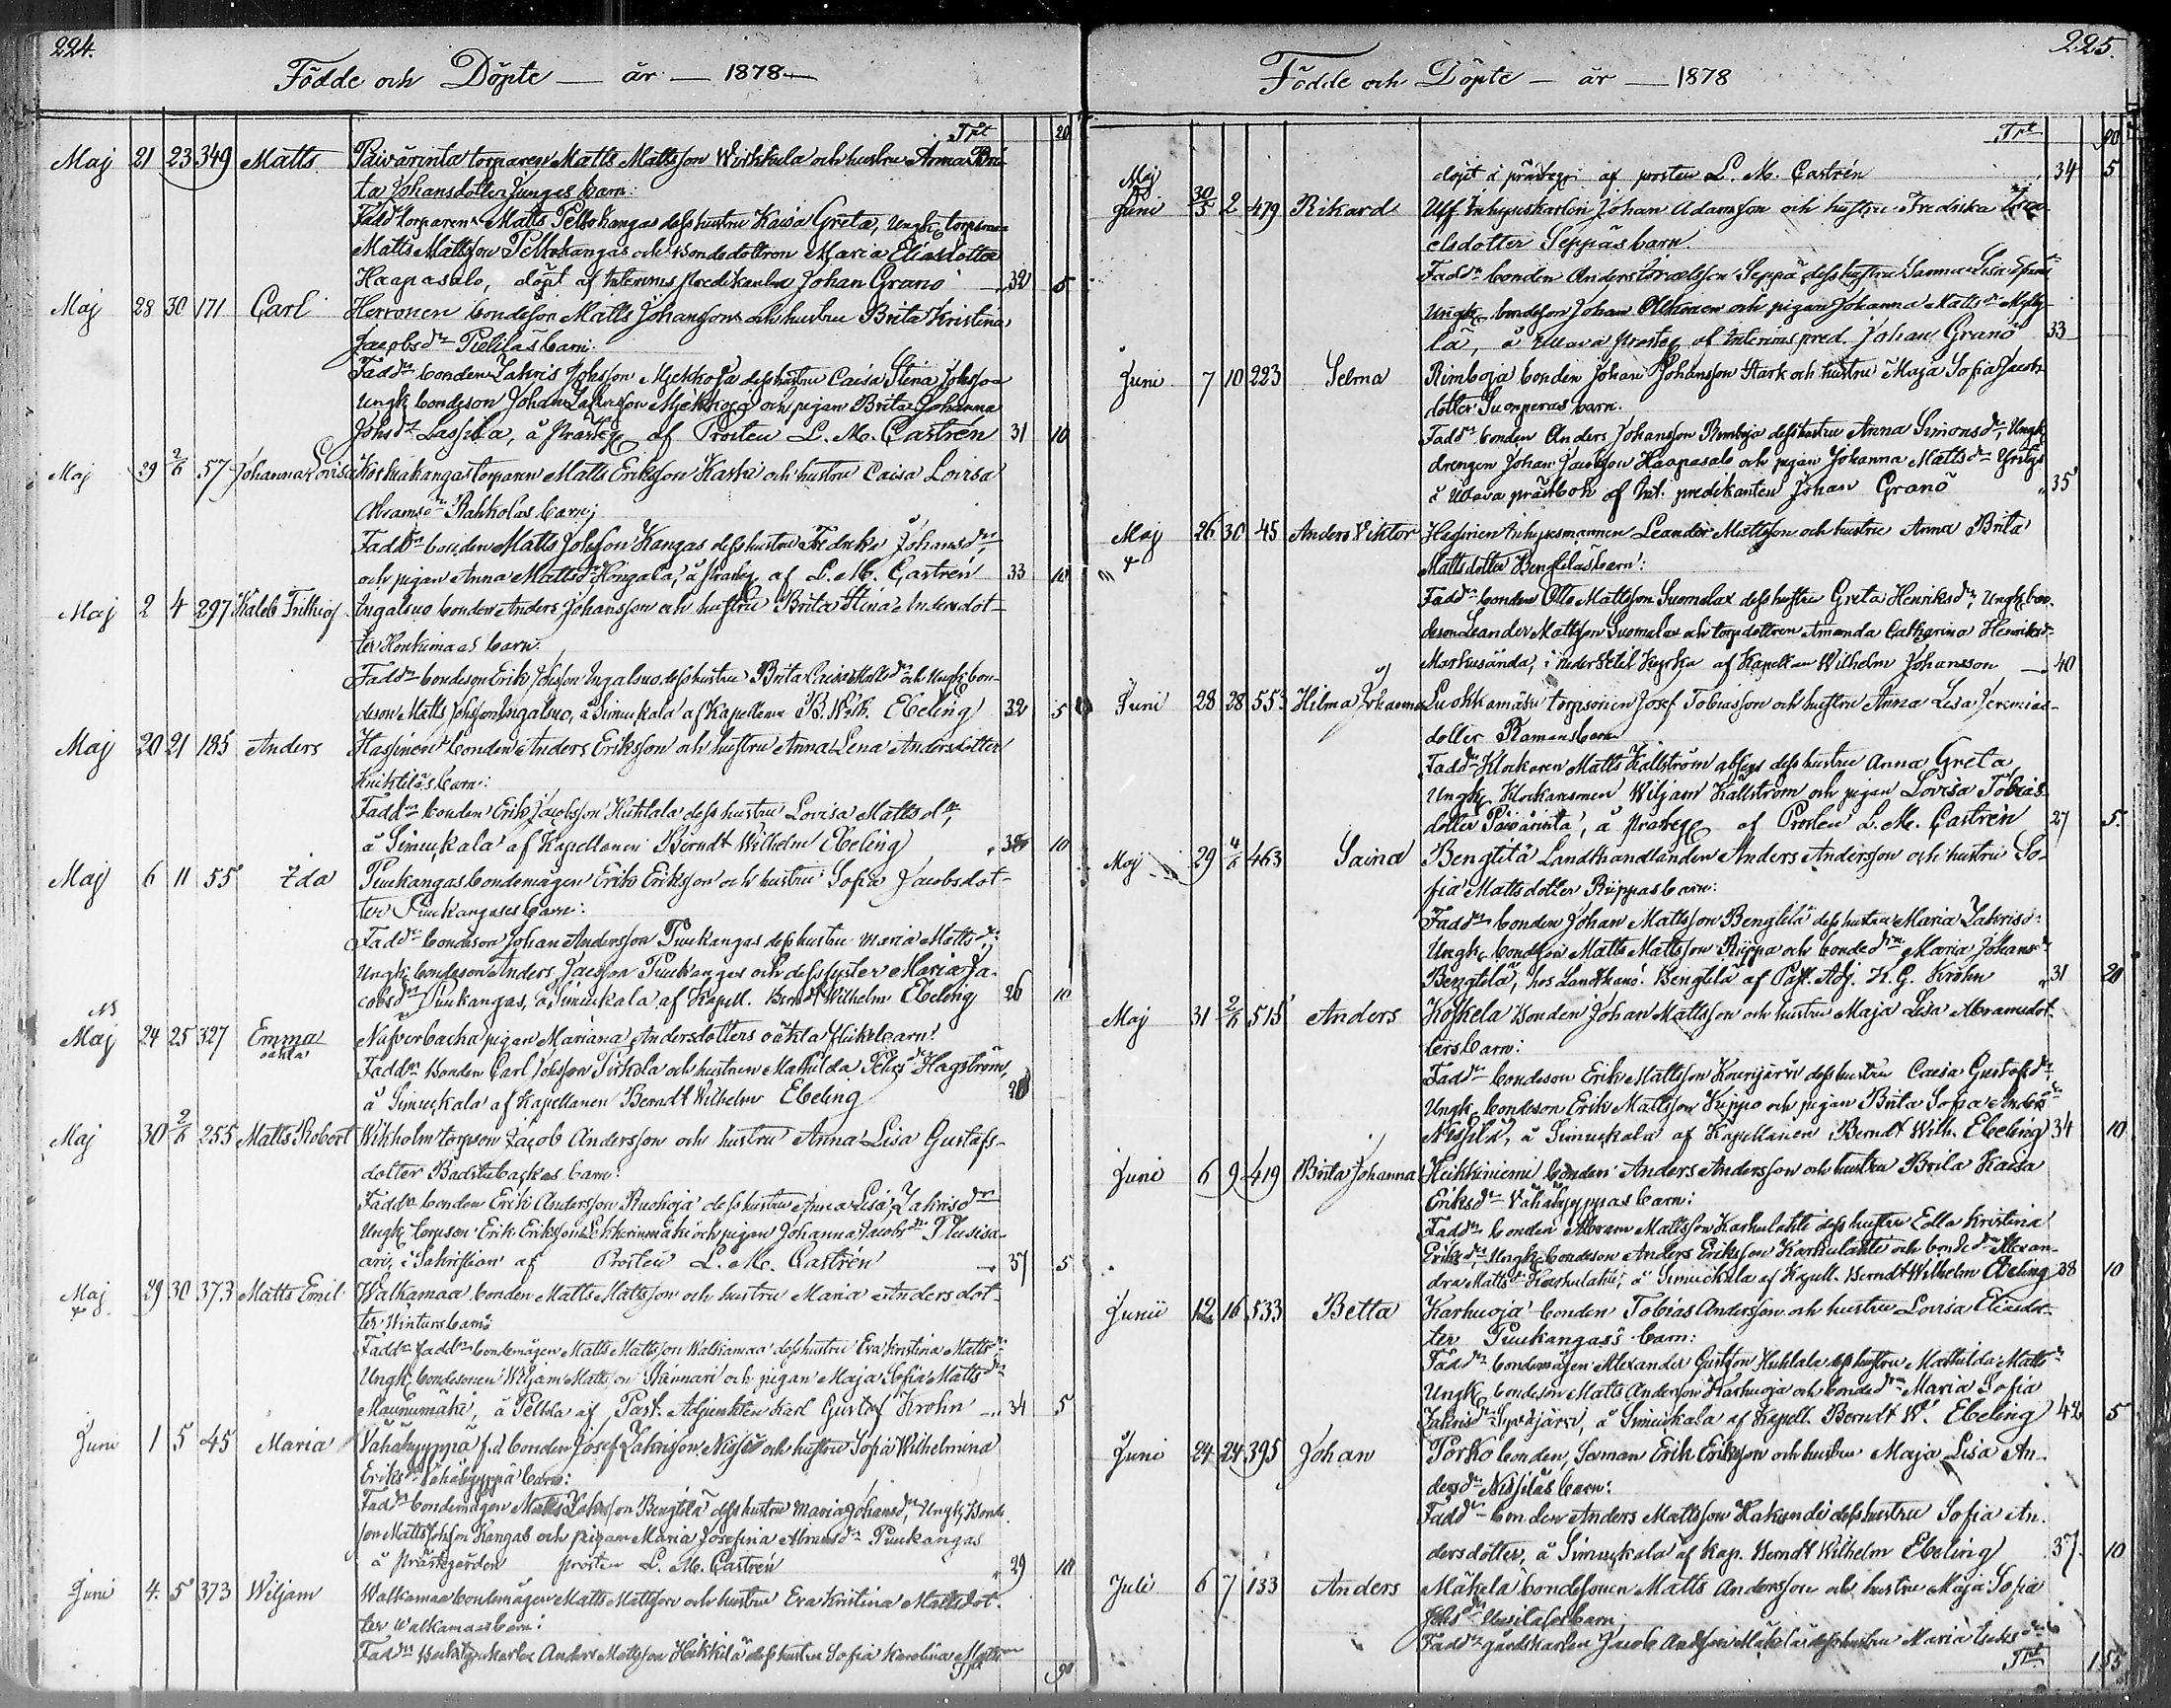 224.
Födde och Döpte — år — 1878
Trt 20
Maj 21 23 349 Matts. Päivärinta torparen Matts Mattsson Wirkkula och hustru Anna Bri-
ta Johansdotter Junges barn:
Fadd torparen Matts Peltokangas dess hustru Kaisa Greta, Ungk torpson
Matts Mattsson Peltokangas och Bondedottren Maria Eliasdotter
Haapasalo, döpt af Interims predikanten Johan Granö 32 5
Maj 28 30 171 Carl Herronen bondeson Matts Johansson och hustru Brita Kristina
Jacobsdr Pietiläs barn:
Faddr bonden Zakris Johsson Myckkoja dess hustru Caisa Stina Johsson
Ungk bondeson Johan Zakrisson och pigan Brita Johanna
Johsdr Lassila, å Prosteg af Prosten L. M. Castrén 31 10
Maj 29 2/6 57 Johanna Lovisa torparen Matts Eriksson Kaski och hustru Caisa Lovisa
Abramsdr Rahkolas barn;
Faddr bonden Matts Johsson Kangas dess hustru Fredrika Johansdr,
och pigan Anna Mattsdr Hongala, å prosteg af L. M. Castrén 33 10
Maj 2 4 297 Kaleb Frithiof Ingalsuo bonden Anders Johansson och hustru Brita Stina Andersdot-
ter Honkimaas barn.
Faddr bondeson Erik Johsson Ingalsuo dess hustru Brita Caisa Mattsdr och Ungk bon-
deson Matts Johsson Ingalsuo, å Simuckala af Kapellanen B. Wilh. Ebeling 32 5
Maj 20 21 185 Anders Hassinen bonden Anders Eriksson och hustru Anna Lena Andersdotter
Knihtiläs barn:
Faddr bonden Erik Jacobsson Huhtala dess hustru Lovisa Mattsdr,
å Simuckala af Kapellanen Berndt Wilhelm Ebeling 10
Maj 6 11 55 Ida Puukangas bondemågen Erik Eriksson och hustru Sofia Jacobsdot-
ter Puukangases barn:
Faddr bondeson Johan Andersson Puukangas dess hustru Maria Mattsdr;
Ungk bondeson Anders Jacsson Puukangas och dess syster Maria Ja-
cobsdr Puukangas, å Simuckala af Kapell. Berndt Wilhelm Ebeling 26 10
Maj 24 25 327 Emma
oäkta
pigan Mariana Andersdotters oäkta flickebarn!
Faddr Bonden Carl Johsson Pirkola och hustrun Mathilda Petersdr Hagström,
å Simuckala af Kapellanen Berndt Wilhelm Ebeling
Maj 30 2/6 255 Matts Robert Wikholm torpson Jacob Andersson och hustru Anna Lisa Gustafs-
dotter Backes barn:
Faddr bonden Erik Andersson Ruokoja dess hustru Anna Lisa Zakrisdr
Ungk torpson Erik Eriksson och pigan Johanna Jacobsdr
i Sakristian af Prosten L. M. Castrén 37 5
Maj 29 30 373 Matts Emil Walkamaa bonden Matts Mattsson och hustru Maria Andersdot-
ter Winters barn:
Faddr bondemågen Matts Mattsson Walkamaa dess hustru Eva Kristina Mattsdr
Ungk bondesonen Wiljam Mattsson och pigan Maja Sofia Mattsdr
Maunumäki, å Peltola af Past. Adjunkten Karl Gustaf Krohn 34 5
Juni 1 5 45 Maria Vähähyyppä f.d bonden Josef Zakrisson och hustru Sofia Wilhelmina
Eriksdr Vähähyyppä barn:
Faddr bondemågen Matts Zakrisson Bengtilä dess hustru Maria Johansdr, Ungk Bonde-
son Matts Johsson Kangas och pigan Maria Josefina Abramsdr Puukangas
å prästegården prosten L. M. Castrén 29 10
Juni 4. 5 373 Wiljam Walkamaa bondemågen Matts Mattsson och hustru Eva Kristina Mattsdot-
ter Walkamaas barn:
Faddr Anders Mattsson Heikkilä dess hustru Sofia Karolina
Trt 90
225.
Födde och Döpte — år — 1878
Trt 90
döpt i prästeg: af prosten L. M. Castrén 34 5
Maj
Juni 30/5 2 479 Rikard Uff. Inhyseskarlen Johan Adamsson och hustru Fredrika
elsdotter Seppäs barn.
Faddr bonden Anders Seppä dess hustru Sanna Lisa
Ungk bondeson Johan och pigan Johanna Mattsdr
lä, å Ullava prosteg af Interims pred. Johan Granö 33
Juni 7 10 223 Selma Rimboja bonden Johan Johansson Stark och hustru Maja Sofia Jacobs
dotter Suonperas barn.
Faddr bonden Anders Johansson Rimboja dess hustru Anna Simonsdr, Ungk
drengen Johan Jacobsson Haapasalo och pigan Johanna Mattsdr
å Ullava af Int. predikanten Johan Granö 35
Maj 26 30 45 Anders Viktor Inhysesmannen Leander Mattsson och hustru Anna Brita
Mattsdotter Bengtiläs barn:
Faddr bonden Otto Mattsson Suomalax dess hustru Greta Henriksdr, Ungk bon-
deson Leander Mattsson Suomalax och torpdottren Amanda Catharina Henriksdr
Markusända, i Kyrka af Kapellan Wilhelm Johansson 40
Juni 28 28 553 Hilma Johanna Luohkamäki torpsonen Josef Tobiasson och hustru Anna Lisa Jeremias-
dotter Ramans barn
Faddr Klockaren Matts Källström dess hustru Anna Greta,
Ungk Klockaresonen Wiljam Källström och pigan Lovisa Tobias
dotter Päivärinta, å Prosteg af Prosten L. M. Castrén 27 5.
Maj 29 4/6 463 Saina Bengtilä Landthandlanden Anders Andersson och hustru So-
fia Mattsdotter Riippas barn:
Faddr bonden Johan Mattsson Bengtilä dess hustru Maria Zakrisd:
Ungk bondeson Matts Mattsson Riippa och bondedrn Maria Johansdr
Bengtilä, hos Landthand. Bengtilä af Past. Adj. K. G. Krohn 31 20
Maj 31 2/6 515 Anders Koskela Bonden Johan Mattsson och hustru Maja Lisa Abramsdot-
ters barn:
Faddr bondeson Erik Mattsson Kourijärvi dess hustru Caisa Gustafsdr,
Ungk bondeson Erik Mattsson Huppo och pigan Brita Sofia Andersdr
Nissilä, å Simuckala af Kapellanen Berndt Wilh. Ebeling 34 10
Juni 6 9 419 Brita Johanna Heikkiniemi bonden Anders Andersson och hustru Brita Kaisa
Eriksdr Vähähyyppas barn:
Faddr bonden Abram Mattsson Karhulahti dess hustru Edla Kristina
Eriksdr, Ungk bondeson Anders Eriksson Karhulahti och bondedr Alexan-
dra Mattsdr Karhulahti, å Simuckala af Kapell. Berndt Wilhelm Ebeling 28 10
Junii 12 16 533 Betta Karhuoja bonden Tobias Andersson och hustru Lovisa Eliasdot-
ter Puukangas's barn:
Faddr bondemågen Alexander Gustsson Huhtala dess hustru Mathilda Mattsdr
Ungk bondeson Matts Andersson Karhuoja och bondedrn Maria Sofia
Zakrisdr Syväjärvi, å Simuckala af Kapell. Berndt W. Ebeling 42 5
Juni 24 24 395 Johan Porko bonden, Seman Erik Eriksson och hustru Maja Lisa An-
dersdr Nissiläs barn:
Faddr bonden Anders Mattsson Hakunde dess hustru Sofia An-
dersdotter, å Simuckala af Kap. Berndt Wilhelm Ebeling 37 10
Juli 6 7 133 Anders Mäkelä bondesonen Matts Andersson och hustru Maja Sofia
Johsdr barn
Faddr gårdskarlen Jacob Andsson Mäkelä dess hustru Maria
Trt 155